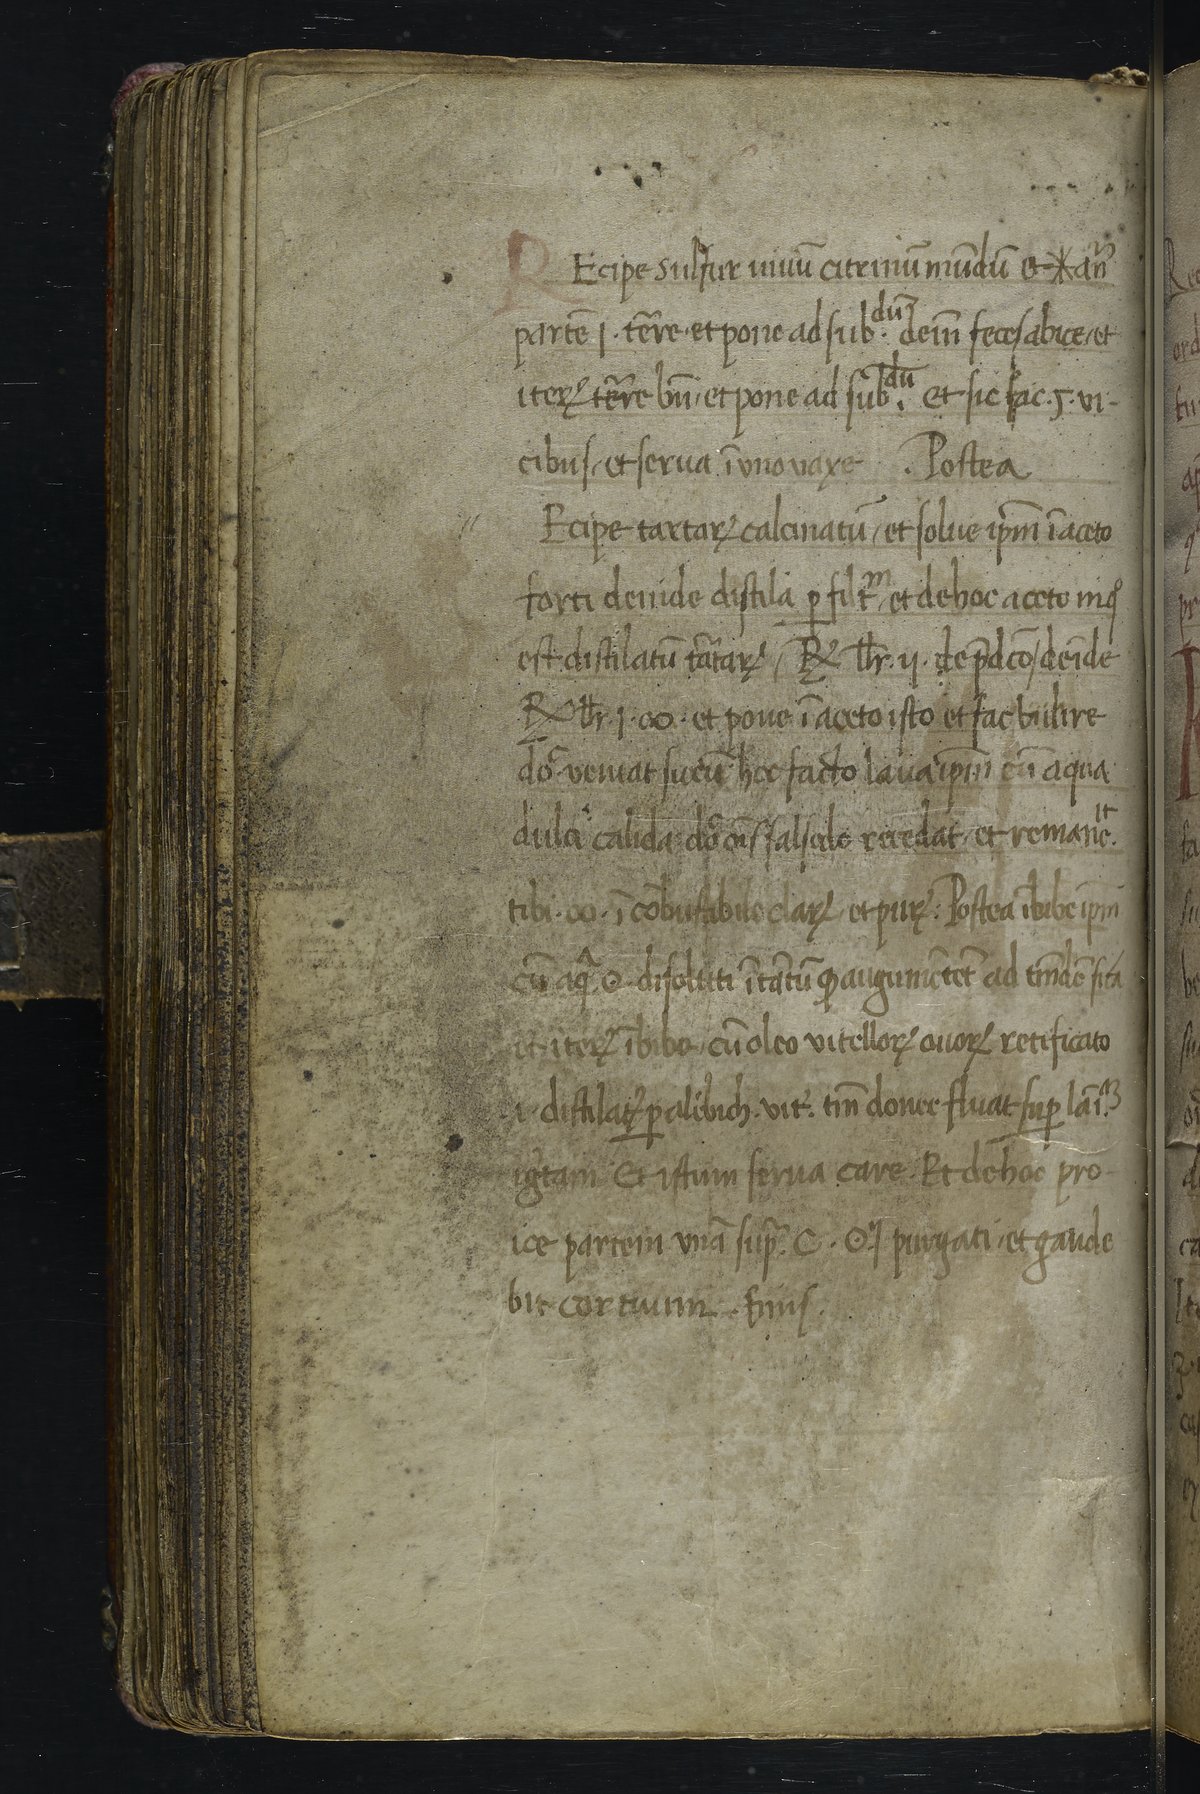 REcipe sulfur uiuū citrinū mūdū et ✶ an̄
partē j. tēre et pone ad sub.dū dein̄ feces abice, et
iteꝝ tēre bn̄, et pone ad sub.dū et sic fac .5. vi-
cibus, et serua ī vno vaxe . Postea
Ecipe tartaꝝ calcinatū, et solue ip̄m ī aceto
forti deinde distila ꝑ filt̄m, et de hoc aceto in qͦ
est distilatū tātaꝝ, ℞ lbr. ij. de p̄dco, deīde
℞ lbr. j. ꝏ. et pone ī aceto isto et fac bulire
do͞c veniat sucū hoc facto laua ip̄m cū aqua
dulci calida do͞c oīs salsedo recedat, et remanēt.
tibi. ꝏ. ī cōbustibile claꝝ, et puꝝ: Postea ībibe ip̄m
cū aq̄ ☉ disoluti ī tātū ꝙ augumētet̄ ad
it iteꝝ ībibe, cū oleo vitelloꝝ ouoꝝ retificato
i. distilaꝝ ꝑ alēbich. vit̄. tm̄ donec fluat suꝑ lāī.ᵃᵐ
iḡtam Et istum serua care. Et de hoc pro-
ice partem vnā sup̄ ☾. purgati, et gaude
bit cor tuum. finis.